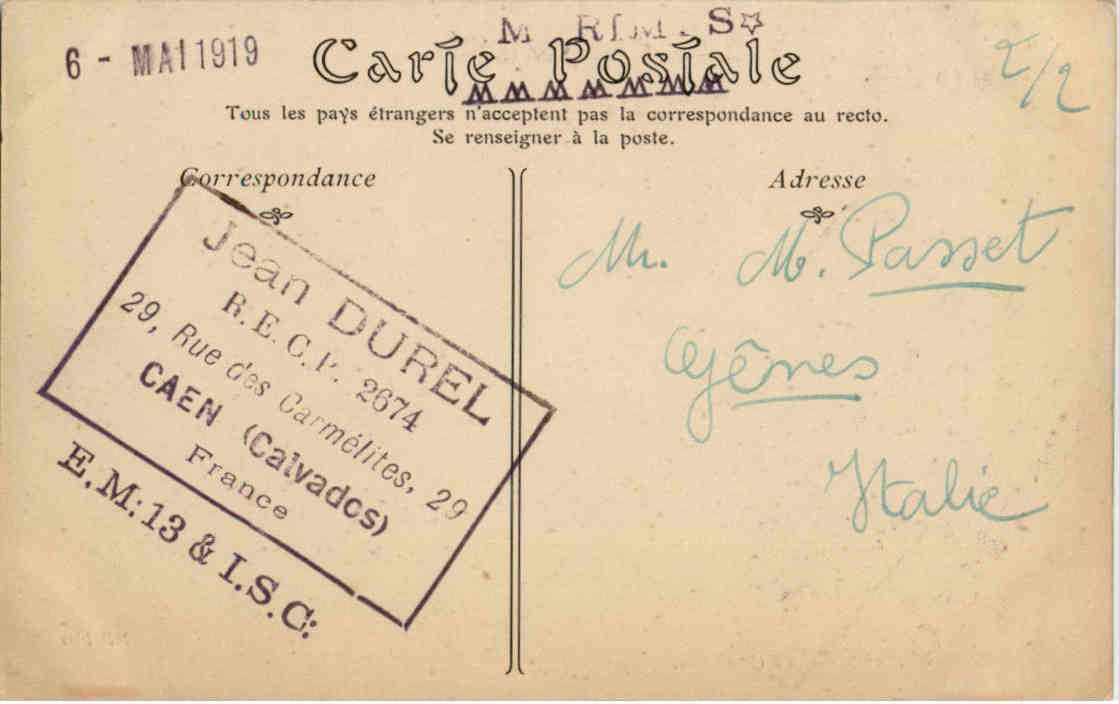 6 - MAI 1919
Carte Postale
2/2
Tous les pays étrangers n'acceptent pas la correspondance au recto.
Se renseigner à la poste.
Correspondance
Adresse
Jean DUREL
R.E.C.P. 2674
29, Rue des Carmélites, 29
CAEN (Calvados)
France
E.M: 13 & I.S.C:
Mr. M. Passet
Gênes
Italie